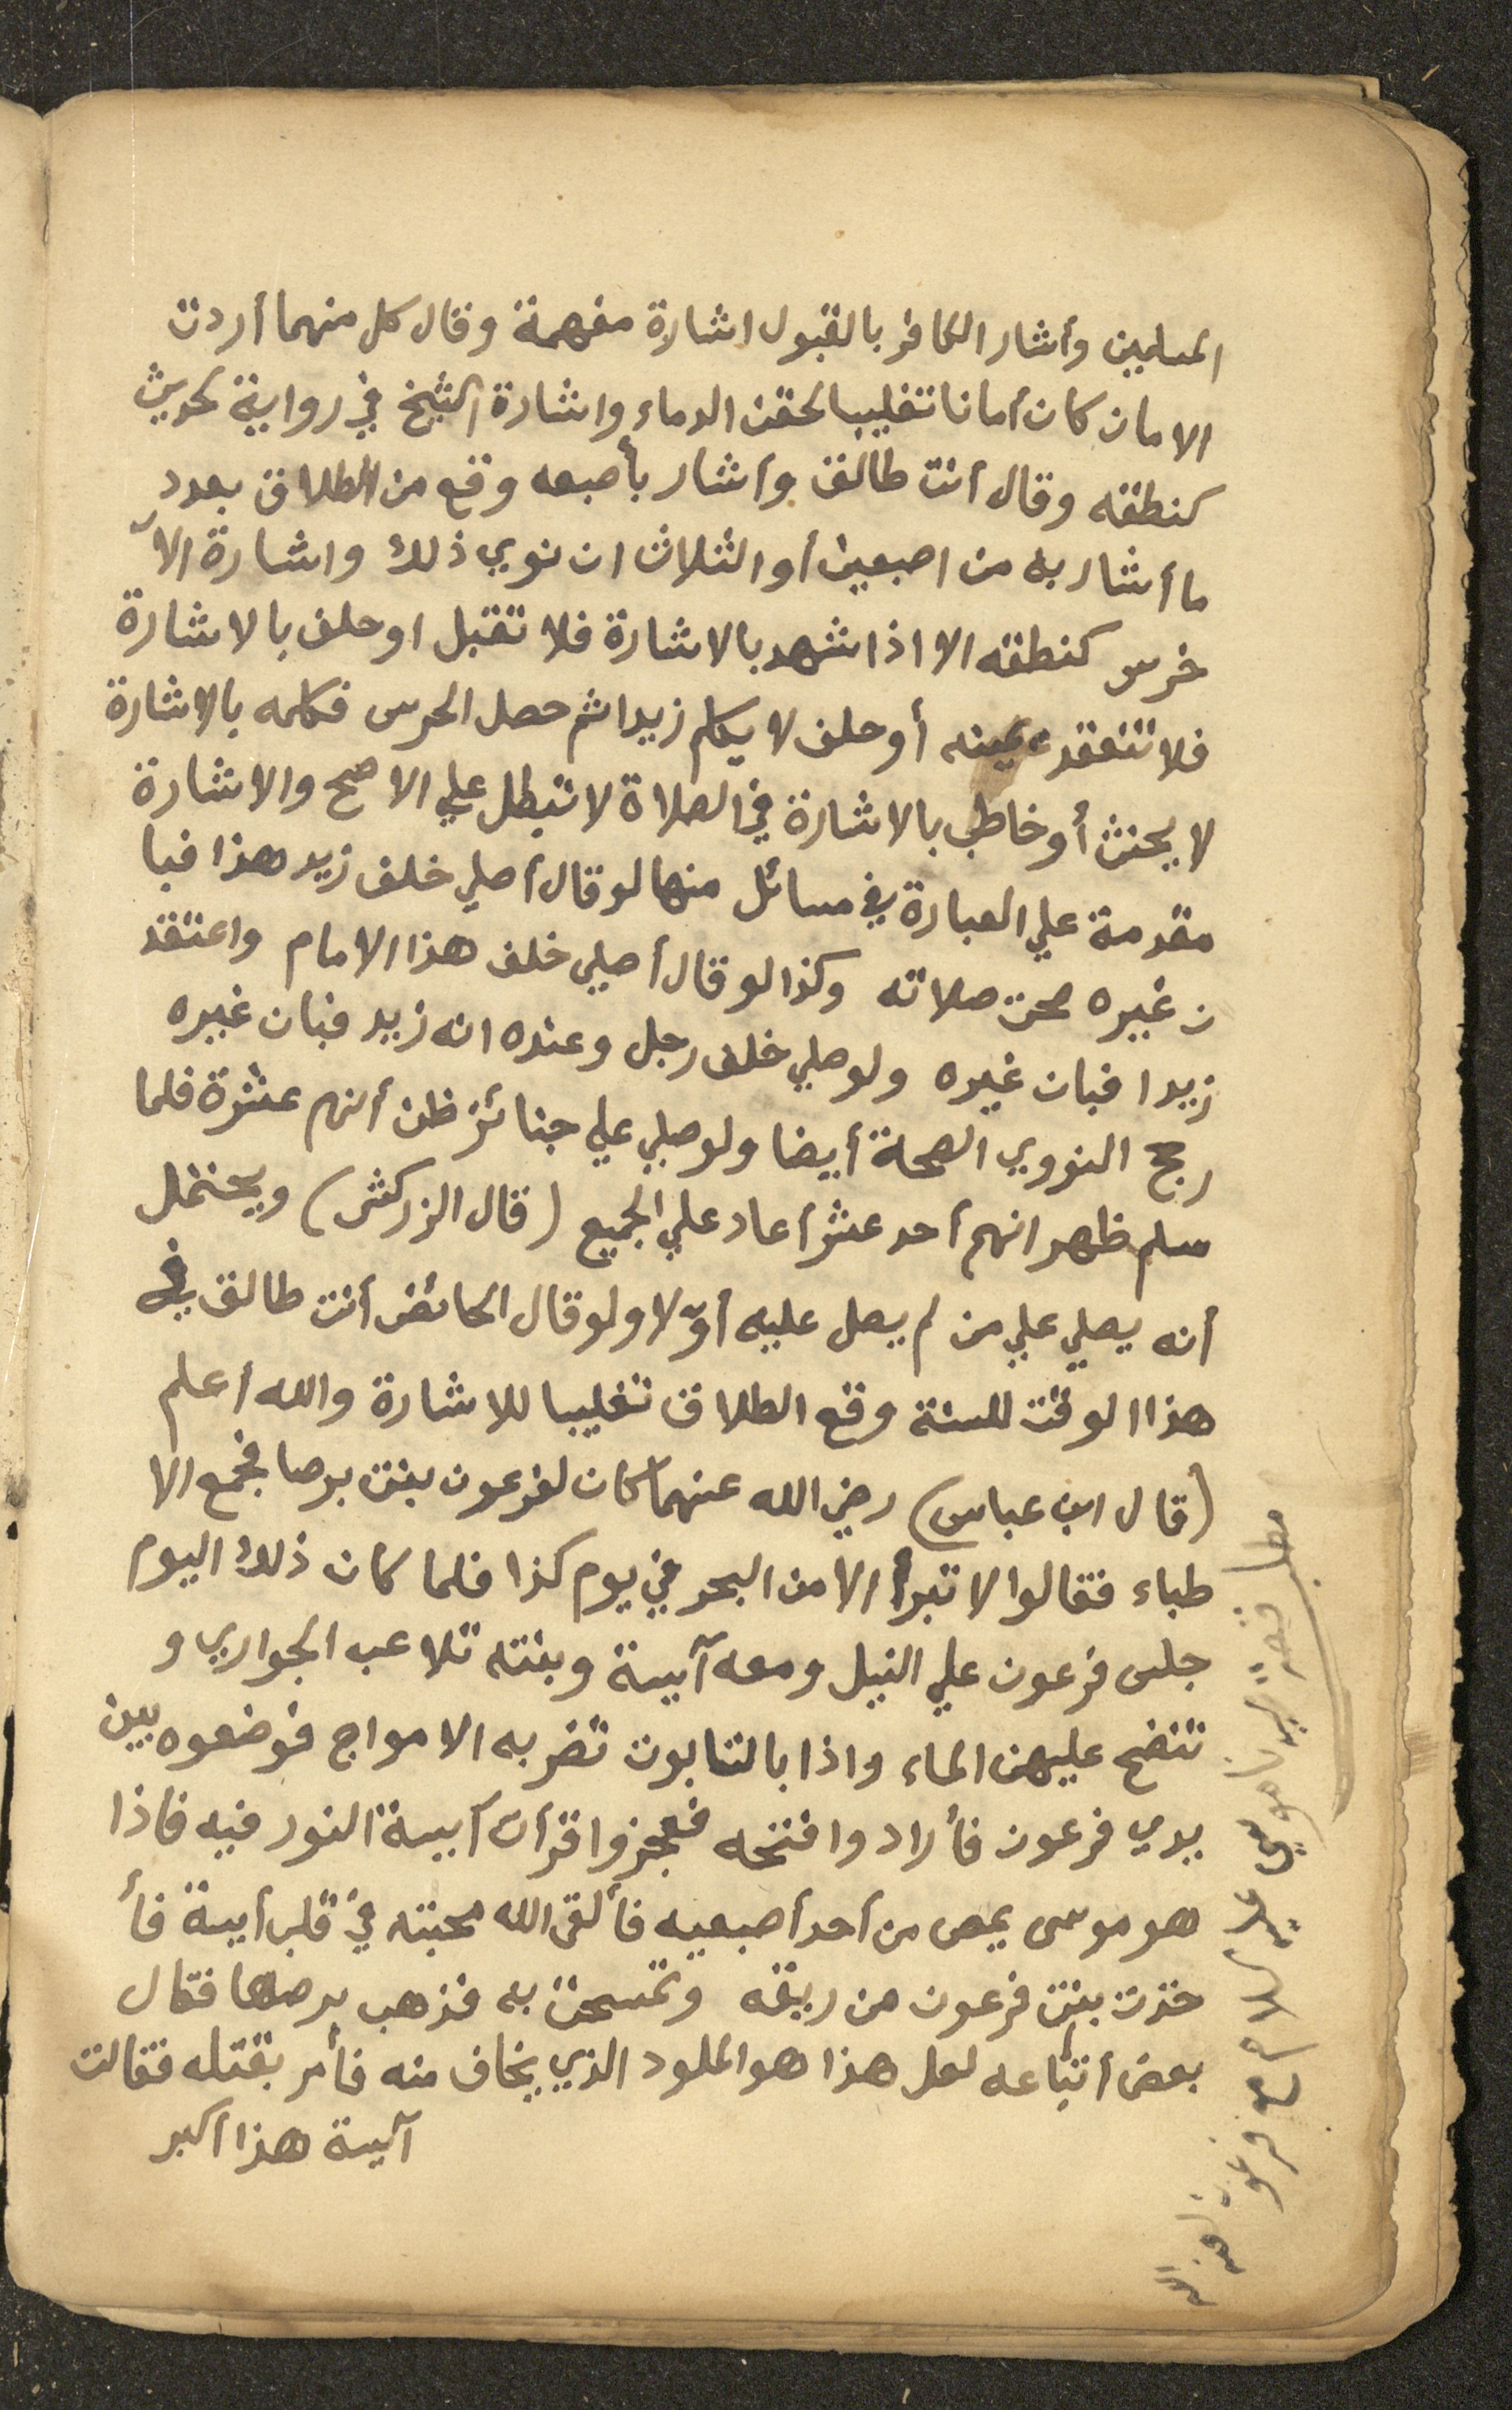 المسلمين وأشار الكافر بالقبول اشارة مفهمة وقال كل منهما أردت
الامان كان أمانا تغليبا لحقن الدماء واشارة الشيخ في رواية لحديث
كنطقه وقال أنت طالق وأشار بأصبعه وقع من الطلاق بعدد
ما أشار به من اصبعين أو الثلاث ان نوي ذلك واشارة الأ
خرس كنطقه الا اذا شهد بالاشارة فلا تقبل اوحلف بالاشارة
فلا تنعقد يمينه أو حلف لا يكلم زيدا ثم حصل الخرس فكلمه بالاشارة
لا يحنث أو خاطب بالاشارة في الصلاة لا تبطل علي الاصح والاشارة
مقدمة علي العبارة في مسائل منها لو قال أصلي خلف زيد هذا فبا
ن غيره صحت صلاته وكذا لو قال أصلي خلف هذا الامام واعتقد
زيدا فبان غيره ولو صلي خلف رجل وعنده انه زيد فبان غيره
رجح النووي الصحة أيضا ولو صلي علي جنائز ظن أنهم عشرة فلما
سلم ظهر انهم أحد عشر أعاد علي الجميع (قال الزركش) ويحتمل
أنه يصلي علي من لم يصل عليه أوّلا ولو قال الحائض أنت طالق في
هذا الوقت للسنة وقع الطلاق تغليبا للاشارة والله أعلم
(قال ابن عباس) رضي الله عنهما كان لفرعون بنت برصا فجمع الا
طباء فقالوا لا تبرأ الا من البحر في يوم كذا فلما كان ذلك اليوم
جلس فرعون علي النيل ومعه آسية وبنته تلاعب الجواري و
تنضح عليهن الماء واذا بالتابوت تضربه الامواج فوضعوه بين
يدي فرعون فأرادوا فتحه فعجزوا فرأت آسية النور فيه فاذا
هو موسى يمص من أحد أصبعيه فألقى الله محبته في قلب أسية فأ
خذت بنت فرعون من ريقه وتمسحت به فذهب برصها فقال
بعض أتباعه لعل هذا هو المولود الذي يخاف منه فأمر بقتله فقالت
آسية هذا أكبر
مطلب قصة سيدنا موسي عليه السلام مع فرعون